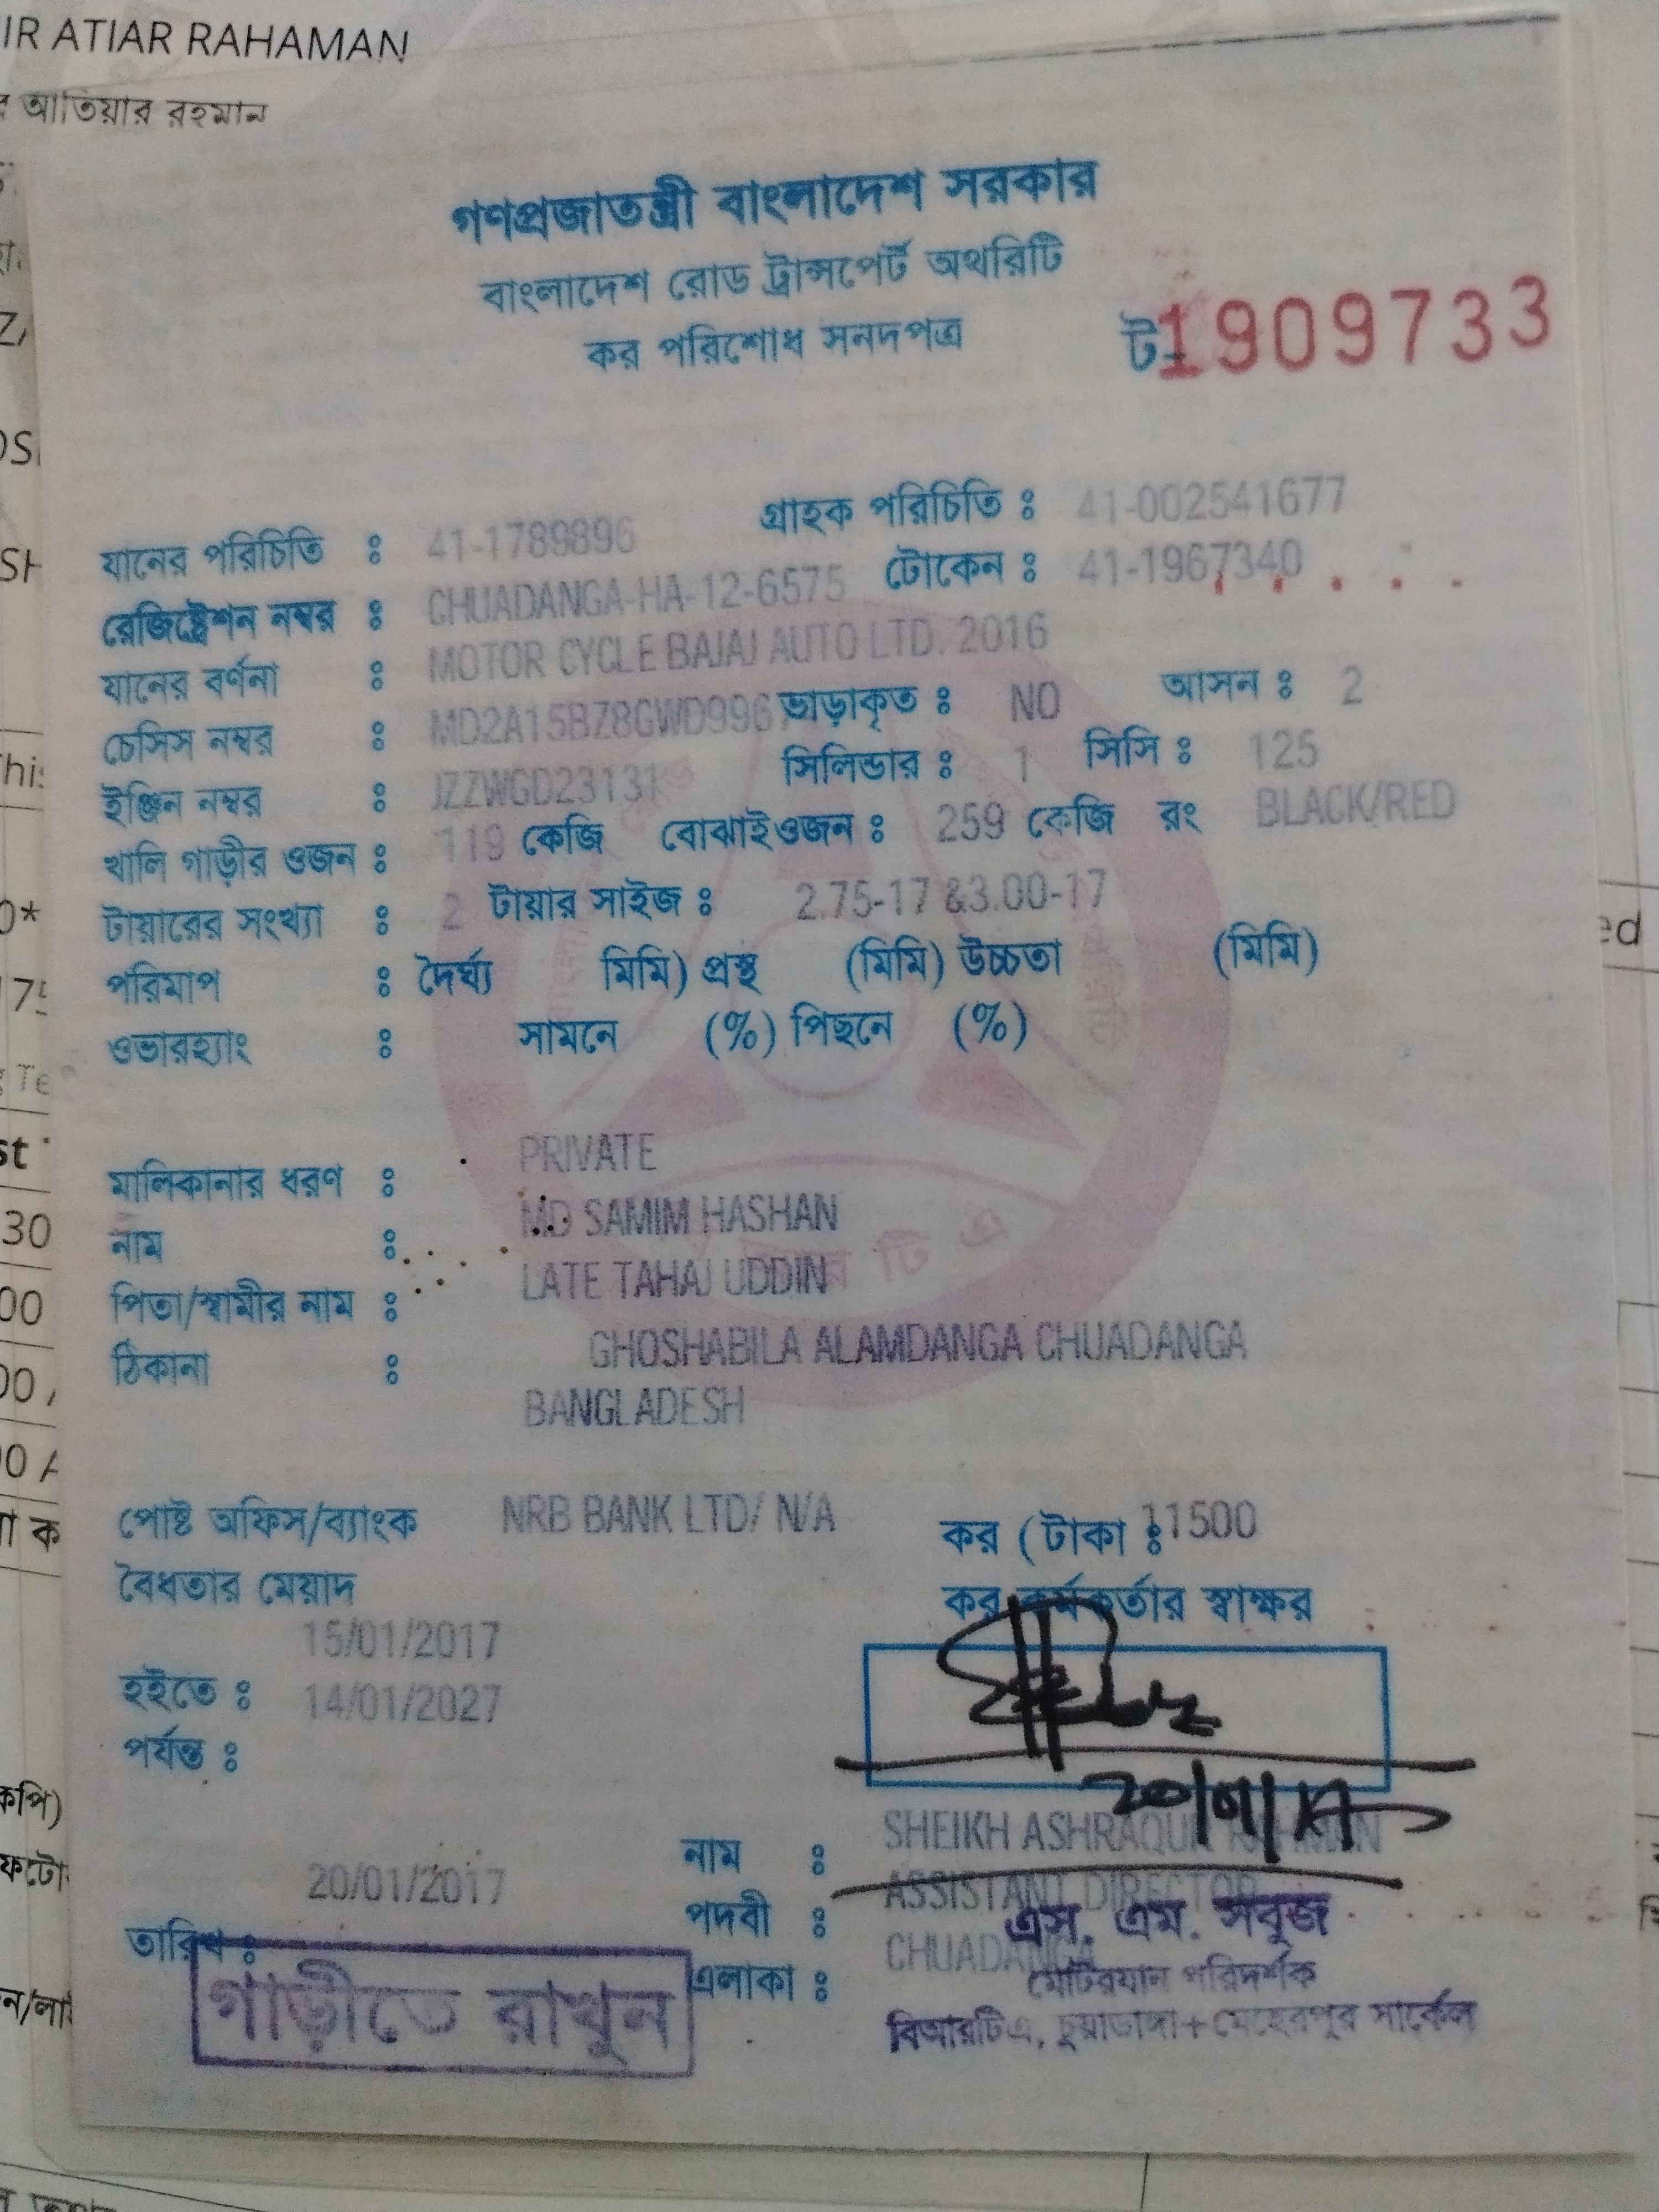 IR ATIAR RAHAMAN
আতিয়ার রহমান
গণপ্রজাতন্ত্রী বাংলাদেশ সরকার
বাংলাদেশ রোড ট্রান্সপের্ট অথরিটি
কর পরিশোধ সনদপত্র
ট-1909733
গ্রাহক পরিচিতি : 41-002541677
যানের পরিচিতি : 41-1789896
টোকেন : 41-1967340
রেজিষ্ট্রেশন নম্বর : CHUADANGA-HA-12-6575
যানের বর্ণনা : MOTOR CYCLE BAJAJ AUTO LTD. 2016
চেসিস নম্বর : MD2A15BZ8GWD996 ভাড়াকৃত : NO আসন : 2
ইঞ্জিন নম্বর : JZZWGD23131 সিলিন্ডার : 1 সিসি : 125
খালি গাড়ীর ওজন : 119 কেজি বোঝাইওজন : 259 কেজি রং BLACK/RED
টায়ারের সংখ্যা : 2 টায়ার সাইজ : 2.75-17 &3.00-17
পরিমাপ : দৈর্ঘ্য মিমি) প্রস্থ (মিমি) উচ্চতা (মিমি)
ওভারহ্যাং : সামনে (%) পিছনে (%)
মালিকানার ধরণ : PRIVATE
নাম : MD SAMIM HASHAN
পিতা/স্বামীর নাম : LATE TAHAJ UDDIN
ঠিকানা : GHOSHABILA ALAMDANGA CHUADANGA
BANGLADESH
পোষ্ট অফিস/ব্যাংক NRB BANK LTD/ N/A কর (টাকা : 11500
বৈধতার মেয়াদ কর কর্মকর্তার স্বাক্ষর
15/01/2017
হইতে : 14/01/2027
পর্যন্ত :
20/01/17
নাম : SHEIKH ASHRAQUR RAHMAN
20/01/2017
পদবী : ASSISTANT DIRECTOR
এস. এম. সবুজ
তারিখ :
এলাকা : CHUADANGA
মোটরযান পরিদর্শক
গাড়ীতে রাখুন
বিআরটিএ, চুয়াডাঙ্গা+মেহেরপুর সার্কেল